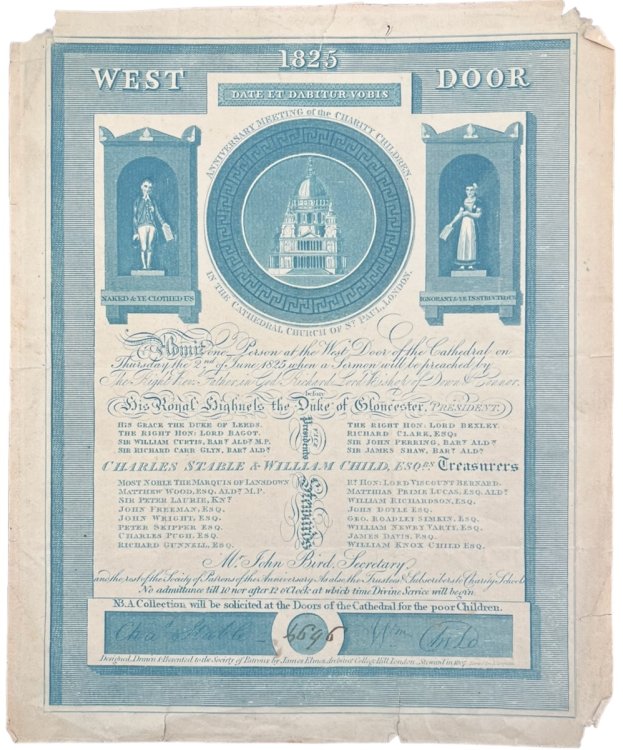 1825
WEST DOOR
DATE ET DABITUR VOBIS
ANNIVERSARY MEETING of the CHARITY CHILDREN,
IN THE CATHEDRAL CHURCH OF St. PAUL, LONDON.
NAKED & YE CLOTHED US
IGNORANT & YE INSTRUCTED US
Admit one Person at the West Door of the Cathedral on
Thursday, the 2nd of June 1825 when a Sermon will be preached by
The Right Rev. Father in God Richard Lord Bishop of Down & Connor.
before
His Royal Highness the Duke of Gloucester, PRESIDENT.
Vice Presidents
HIS GRACE THE DUKE OF LEEDS.
THE RIGHT HON: LORD BAGOT.
SIR WILLIAM CURTIS, BART. ALDN. M.P.
SIR RICHARD CARR GLYN, BART. ALDN.
THE RIGHT HON: LORD BEXLEY.
RICHARD CLARK, ESQR.
SIR JOHN PERRING, BART. ALDN.
SIR JAMES SHAW, BART. ALDN.
CHARLES STABLE & WILLIAM CHILD, ESQRS. Treasurers
Stewards
MOST NOBLE THE MARQUIS OF LANSDOWN
MATTHEW WOOD, ESQ. ALDN. M.P.
SIR PETER LAURIE, KNT.
JOHN FREEMAN, ESQ.
JOHN WRIGHT, ESQ.
PETER SKIPPER ESQ.
CHARLES PUGH, ESQ.
RICHARD GUNNELL, ESQ.
RT. HON: LORD VISCOUNT BERNARD.
MATTHIAS PRIME LUCAS, ESQ. ALDN.
WILLIAM RICHARDSON, ESQ.
JOHN DOYLE ESQ.
GEO. ROADLEY SIMKIN, ESQ.
WILLIAM NEWBY VARTY, ESQ.
JAMES DAVIS, ESQ.
WILLIAM KNOX CHILD ESQ.
Mr. John Bird, Secretary
and the rest of the Society of Patrons of the Anniversary. As also the Trustees & Subscribers to Charity Schools
No admittance till 10 nor after 12 o'Clock at which time Divine Service will begin.
NB. A Collection will be solicited at the Doors of the Cathedral for the poor Children.
Chas. Stable 6696 Wm. Child
Designed, Drawn & Presented to the Society of Patrons by James Elmes, Architect College Hill, London. Steward in 1807.